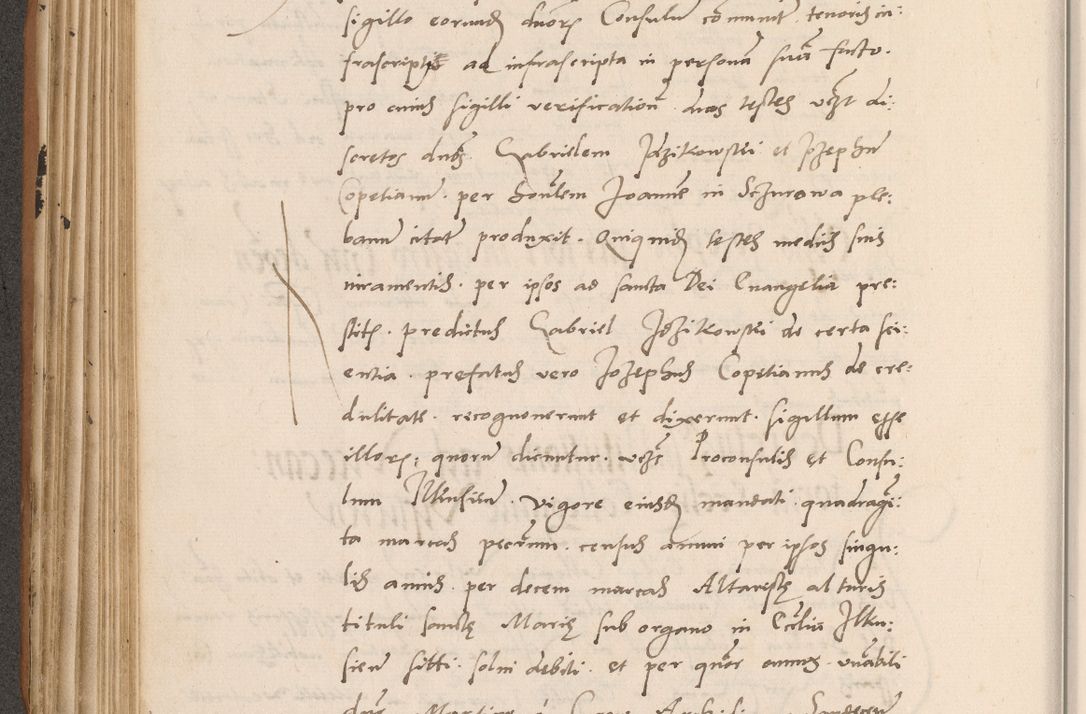 sigillo eorundem duorum Consulum communit tenoris in:
frascriptis ad infrascripta in personam suam facto.
pro cuius sigilli verification duos testes vzt di:
scretos dnos Gabrielem Jdzikowski et Jozephum
Copetianum per honlem Joannem in Sczurowa ple:
banum citatum produxit. Quiquidem testes mediis suis
iuramentis per ipsos ad sancta Dei Euangelia pre:
stitis. predictus Gabriel Jdzikowski de certa sci:
entia. prefatus vero Jozephus Copetianus de cre:
dulitate. recognouerunt et dixerunt. sigillum esse
illorum: quorum dicuntur. vczt Proconsulis et Consu:
lum Ilkusien. vigore eiusdem mandati quadragin:
ta marcas pecun. census annui per ipsos singu:
lis annis per decem marcas Altaristę altaris
tituli sanctę Marię sub organo in Ecclia Ilku:
sien sitti. solui debiti. et per quatuor annos. vnabili